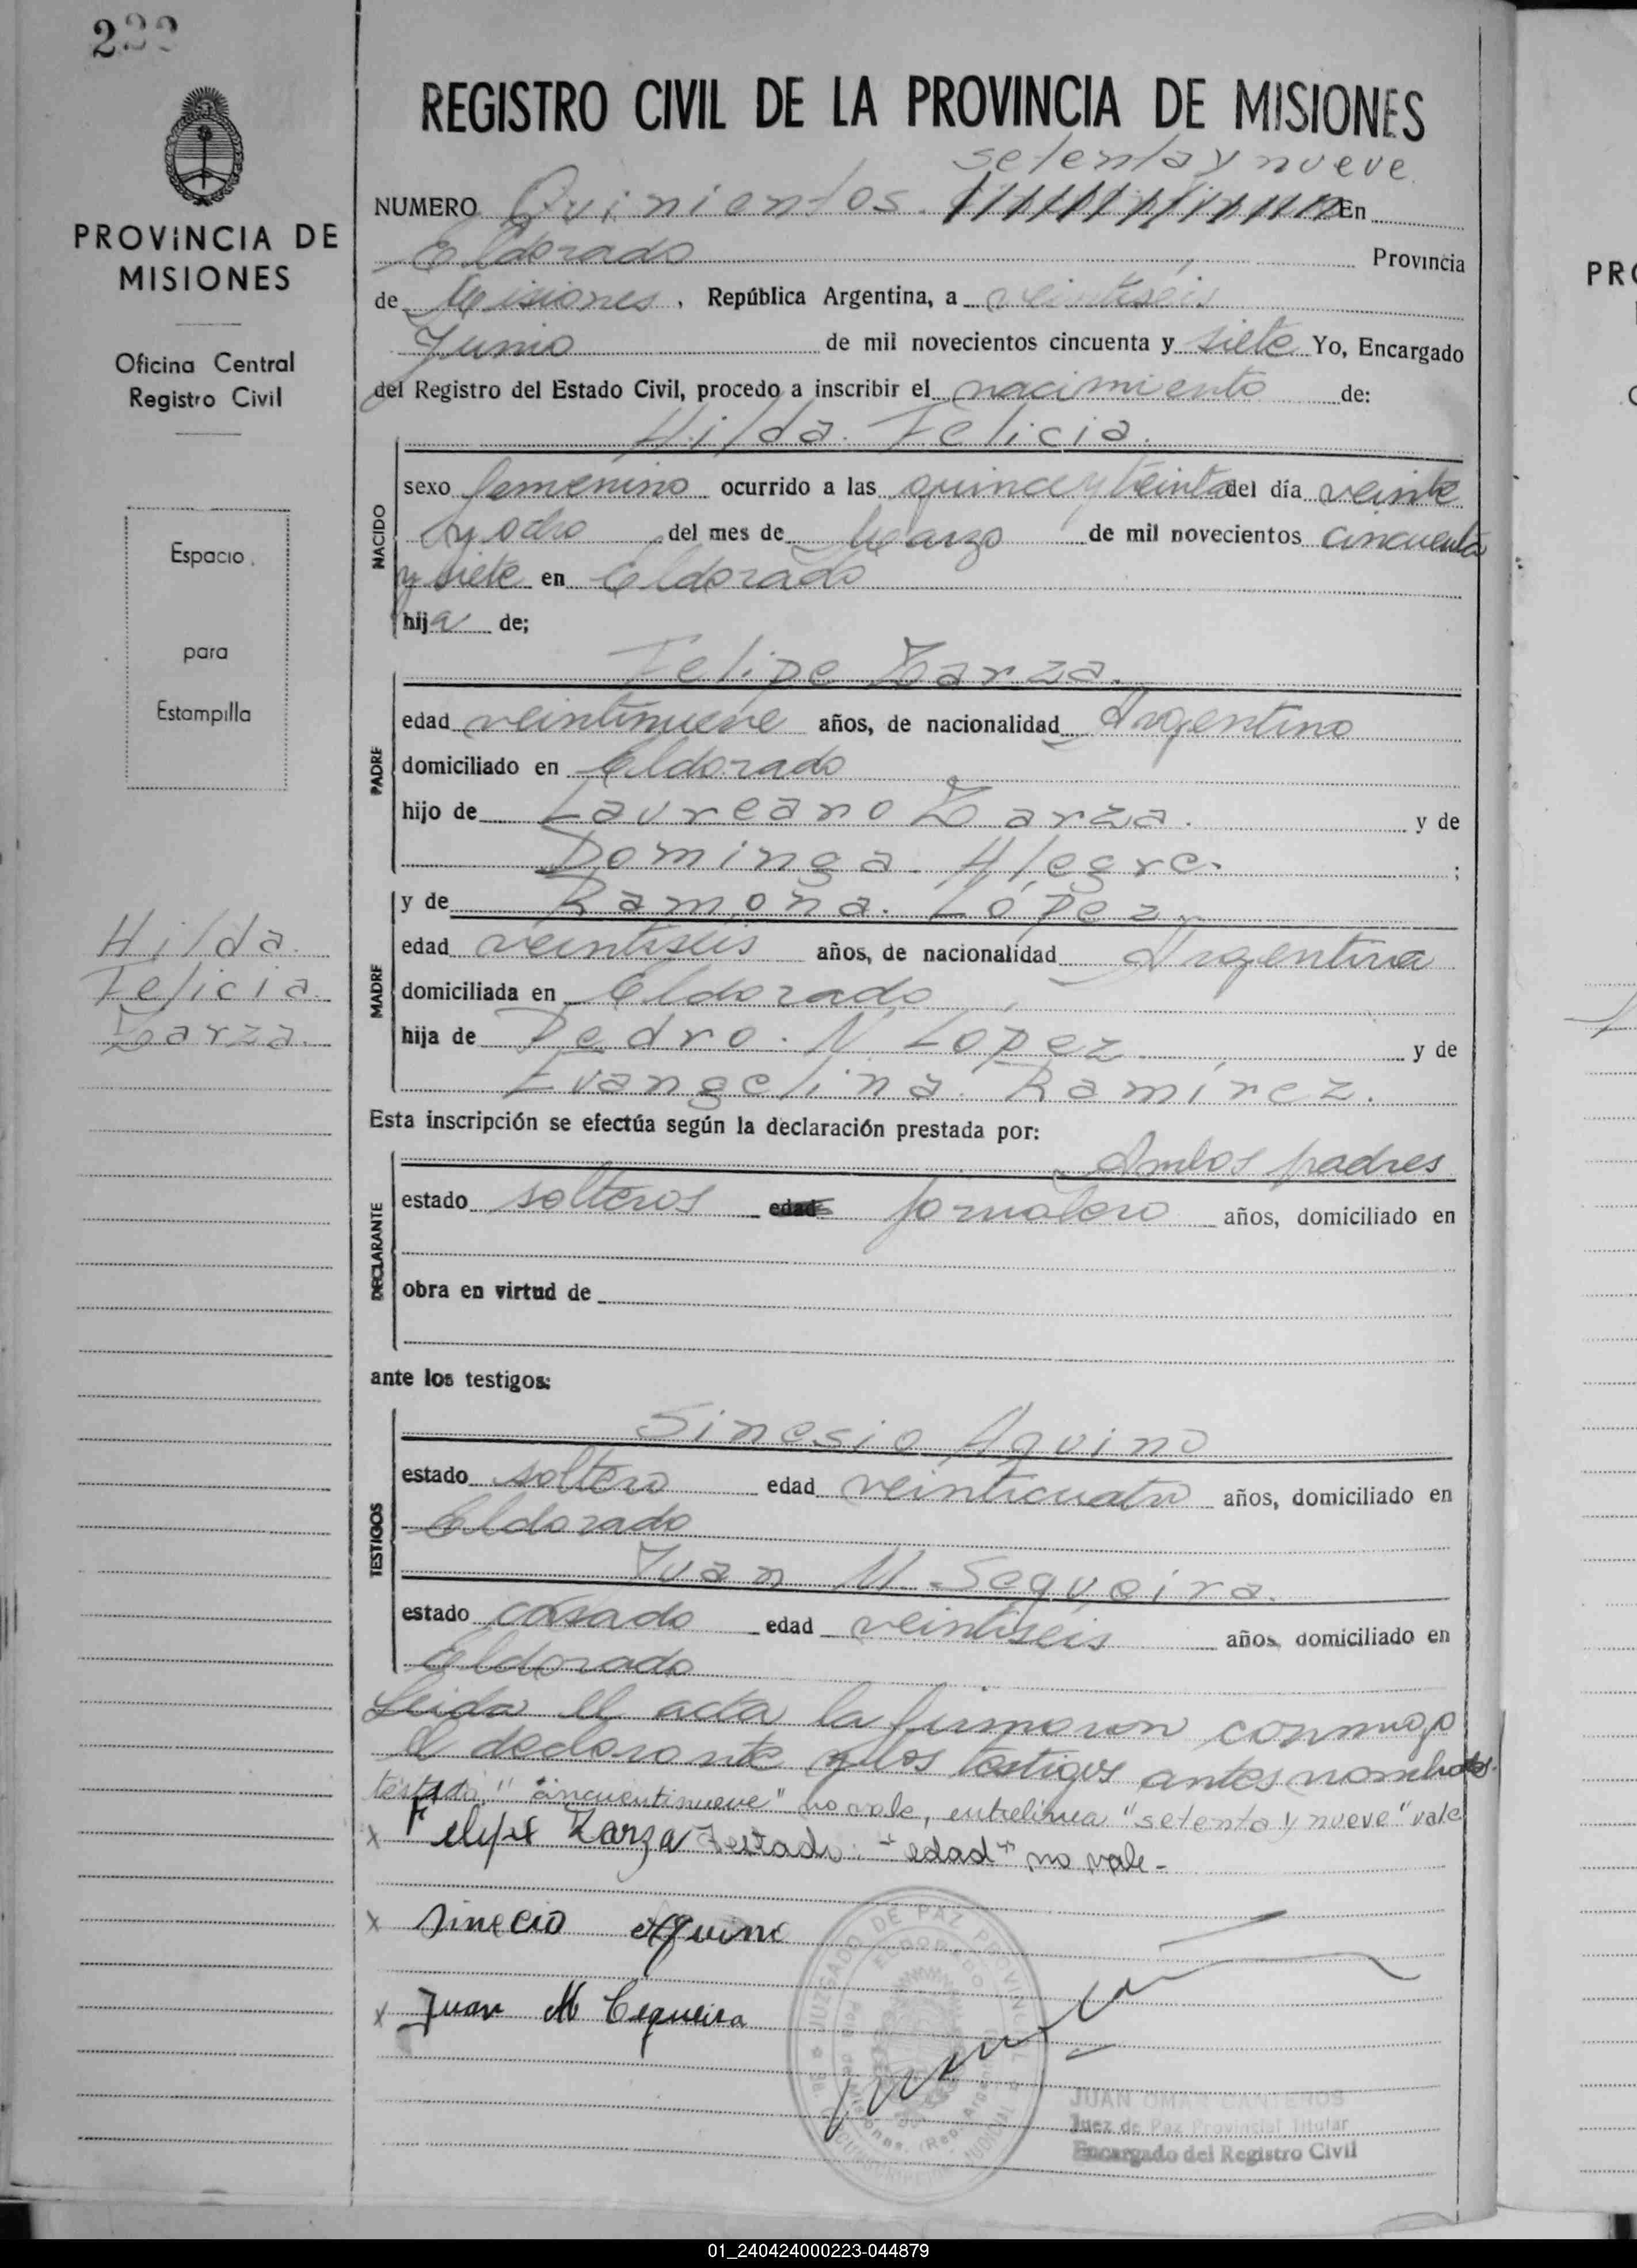 REGISTRO CIVIL DE LA PROVINCIA DE MISIONES
setenta y nueve
NUMERO Quinientos. En
Eldorado Provincia
de Misiones, República Argentina, a veintiseis
Junio de mil novecientos cincuenta y siete Yo, Encargado
del Registro del Estado Civil, procedo a inscribir el nacimiento de:
Hilda. Felicia.
NACIDO
sexo femenino ocurrido a las quince y treinta del día veinte
y ocho del mes de Marzo de mil novecientos cincuenta
y siete en Eldorado
hija de;
Felipe Zarza.
PADRE
edad veintinueve años, de nacionalidad Argentino
domiciliado en Eldorado
hijo de Laureano Zarza. y de
Dominga Alegre. ;
y de Ramona. Lopez
MADRE
edad veintiseis años, de nacionalidad Argentina
domiciliada en Eldorado
hija de Pedro. N. Lopez y de
Evangelina. Ramírez.
Esta inscripción se efectúa según la declaración prestada por:
Ambos padres
DECLARANTE
estado solteros edad jornalero años, domiciliado en
obra en virtud de
ante los testigos:
Sinesio Aquino
TESTIGOS
estado soltero edad veinticuatro años, domiciliado en
Eldorado
Juan M. Sequeira.
estado casado edad veintiseis años, domiciliado en
Eldorado
Leida el acta la firmaron conmigo
el declarante y los testigos antes nombrados.
testado: "cincuentinueve" no vale, entrelinea "setenta y nueve" vale
x Felipe Zarza Testado: "edad" no vale-
x Sinecio Aquino
x Juan M Cequeira
JUZGADO DE PAZ PROVINCIAL
ELDORADO
JUAN OMAR CANTEROS
Juez de Paz Provincial Titular
Encargado del Registro Civil
PROVINCIA DE
MISIONES
Oficina Central
Registro Civil
Espacio
para
Estampilla
Hilda.
Felicia.
Zarza.
PRO
01_240424000223-044879